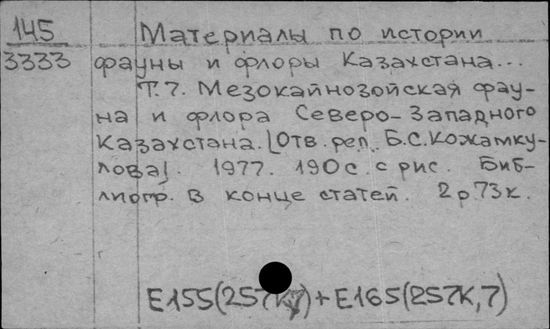 145 Материалы по истории
3333 фауны и флоры Казахстана...
Т.7. Мезокайнозойская фау-
на и флора Северо-Западного
Казахстана. [Отв. ред. Б.С. Кожамку-
лова]. 1977. 190 с. с рис. Биб-
лиогр. в конце статей. 2р.73к.
Е155(257К,7)+Е165(257К,7)